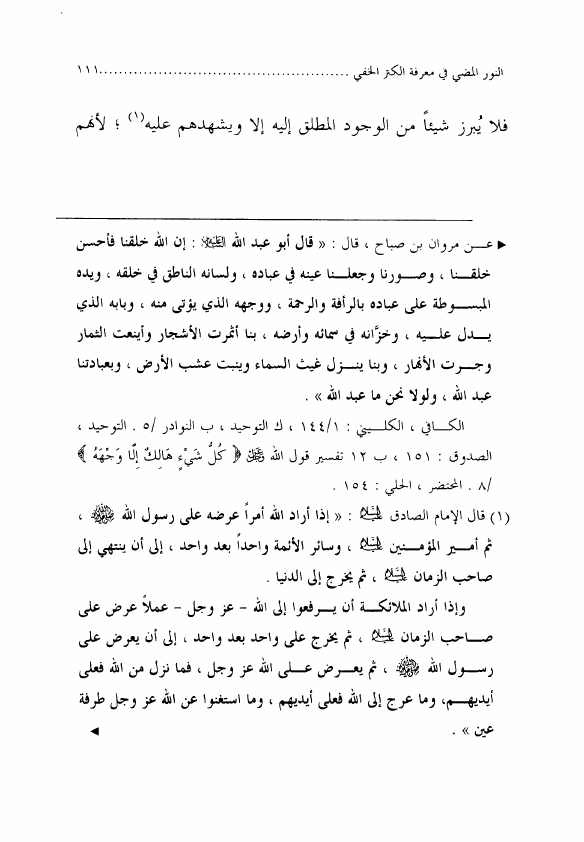 النور المضي في معرفة الكنز الخفي ................................................ ١١١
فلا يُبرز شيئاً من الوجود المطلق إليه إلا ويشهدهم عليه(١) ؛ لأنهم
◄ عـن مروان بن صباح ، قال : « قال أبو عبد الله عليه السلام : إن الله خلقنا فأحسن
خلقـنا ، وصـورنا وجعلـنا عينه في عباده ، ولسانه الناطق في خلقه ، ويده
المبسـوطة على عباده بالرأفة والرحمة ، ووجهه الذي يؤتى منه ، وبابه الذي
يـدل علـيه ، وخزَّانه في سمائه وأرضه ، بنا أثمرت الأشجار وأينعت الثمار
وجـرت الأنهار ، وبنا ينـزل غيث السماء وينبت عشب الأرض ، وبعبادتنا
عبد الله ، ولولا نحن ما عبد الله » .
الكـافي ، الكلـيني : ١/١٤٤ ، ك التوحيد ، ب النوادر /٥ . التوحيد ،
الصدوق : ١٥١ ، ب ١٢ تفسير قول الله ﷻ ﴿ كُلُّ شَيْءٍ هَالِكٌ إِلَّا وَجْهَهُ ﴾
/٨ . المحتضر ، الحلي : ١٥٤ .
(١) قال الإمام الصادق عليه السلام : « إذا أراد الله أمراً عرضه على رسول الله ﷺ ،
ثم أمـير المؤمـنين عليه السلام ، وسائر الأئمة واحداً بعد واحد ، إلى أن ينتهي إلى
صاحب الزمان عليه السلام ، ثم يخرج إلى الدنيا .
وإذا أراد الملائكـة أن يـرفعوا إلى الله – عز وجل – عملاً عرض على
صـاحب الزمان عليه السلام ، ثم يخرج على واحد بعد واحد ، إلى أن يعرض على
رسـول الله ﷺ ، ثم يعـرض عـلى الله عز وجل ، فما نزل من الله فعلى
أيديهـم، وما عرج إلى الله فعلى أيديهم ، وما استغنوا عن الله عز وجل طرفة
عين » . ◄